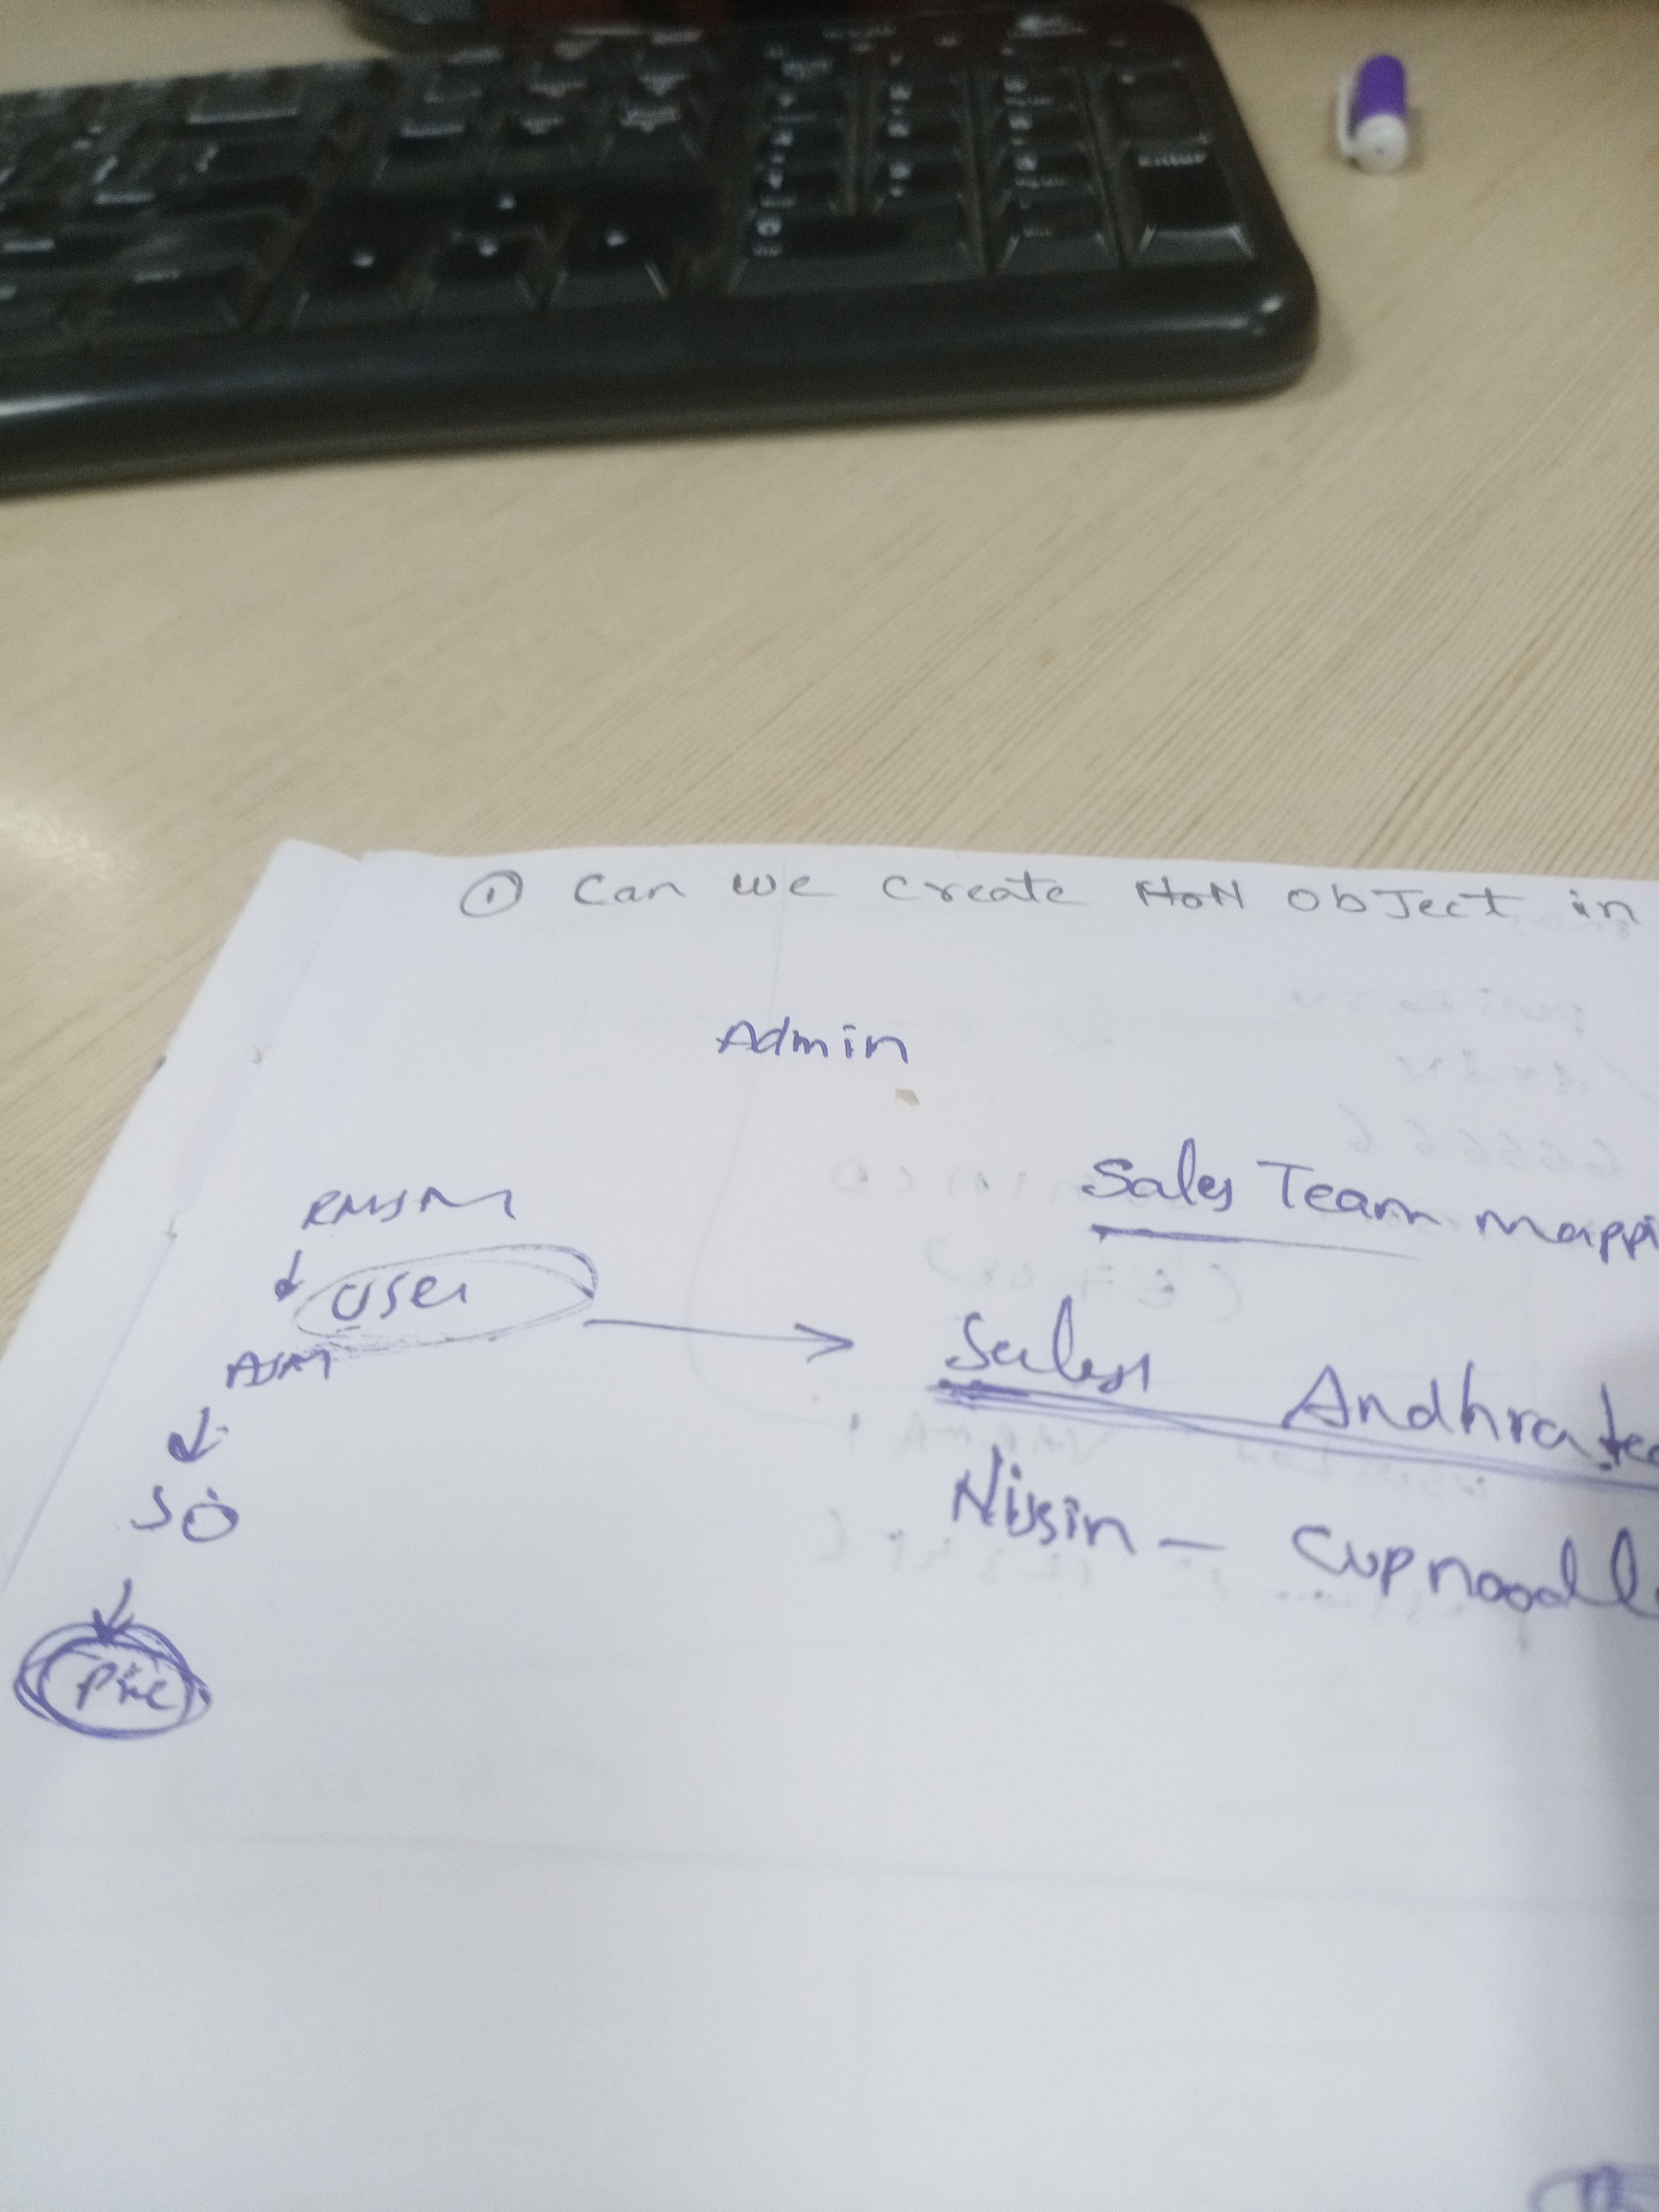 ① Can we create HON object in
Admin
Sales Team mappi
User
ASM
Sales1 Andhrate
SO
Nissin — Cupnoodle